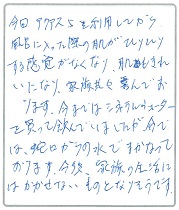 今回アクアス5を利用してから
風呂に入った際の肌がひりひり
する感覚がなくなり、肌もきれ
いになり、家族共々喜んでお
ります。今まではミネラルウォーター
を買って飲んでいましたが今で
は、蛇口からの水ですんでなって
おります。今後、家族の生活に
はかかせないものとなりそうです。